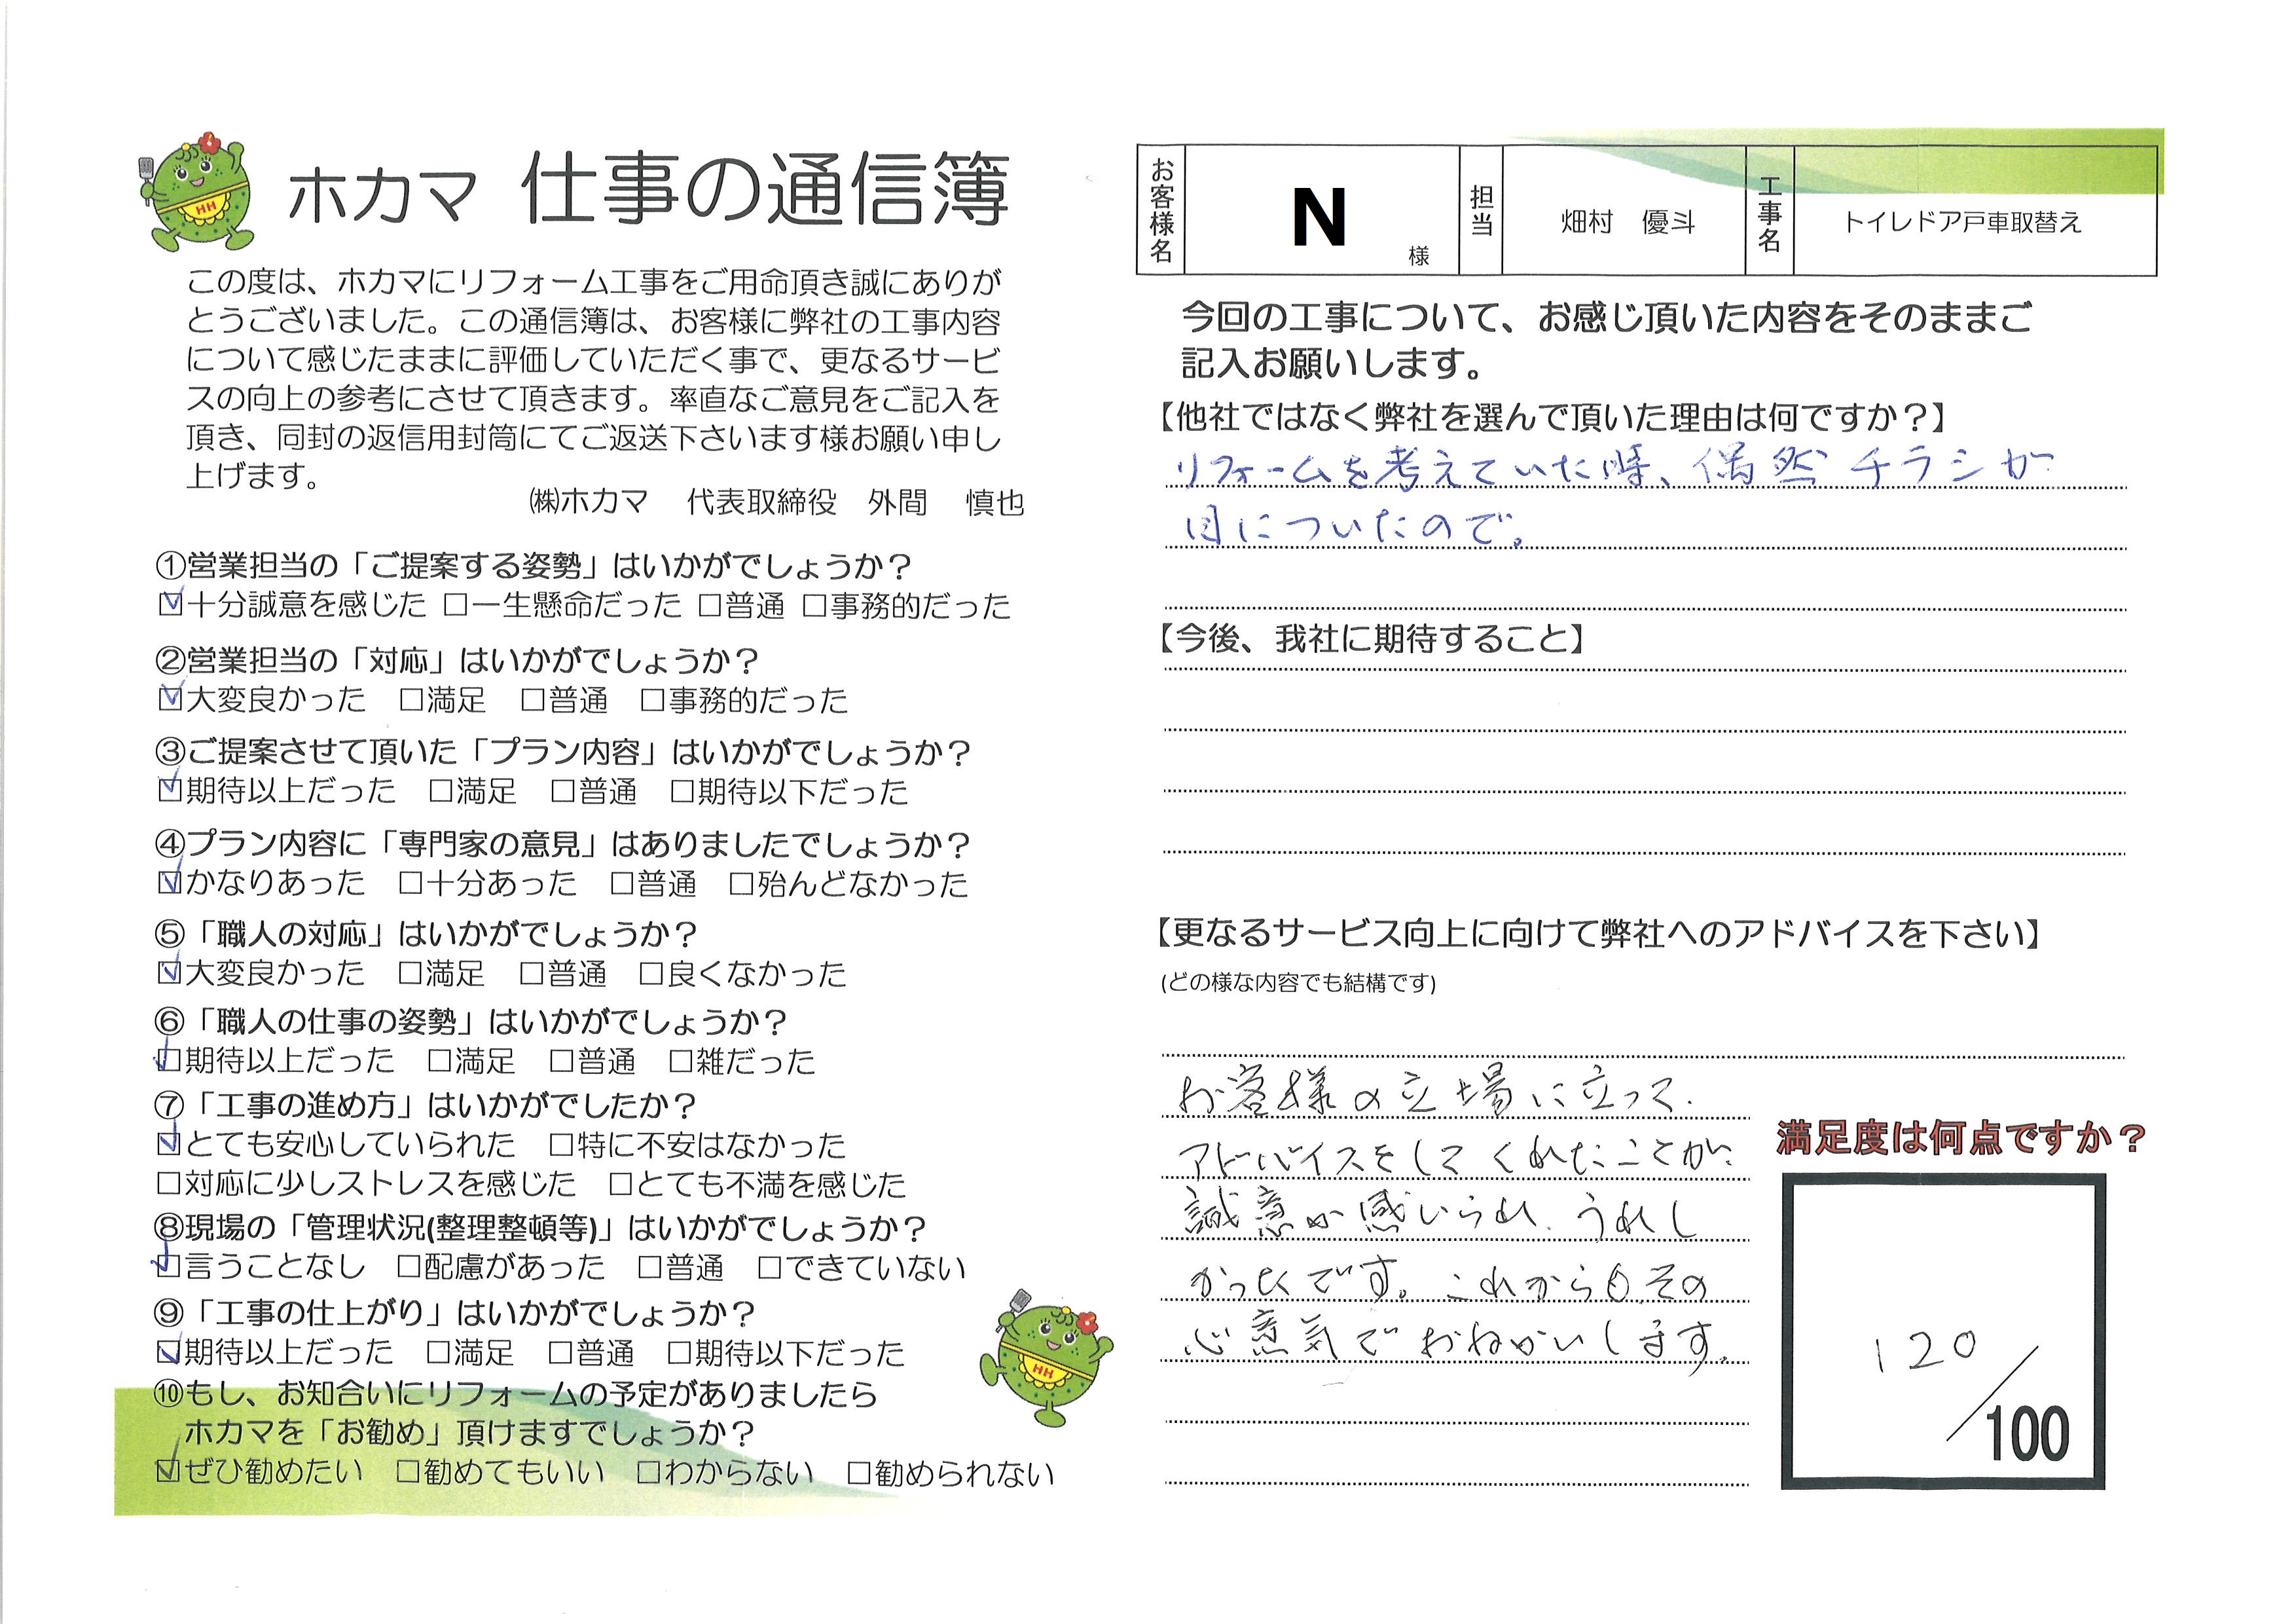 ホカマ 仕事の通信簿
この度は、ホカマにリフォーム工事をご用命頂き誠にありが
とうございました。この通信簿は、お客様に弊社の工事内容
について感じたままに評価していただく事で、更なるサービ
スの向上の参考にさせて頂きます。率直なご意見をご記入を
頂き、同封の返信用封筒にてご返送下さいます様お願い申し
上げます。
㈱ホカマ 代表取締役 外間 慎也
①営業担当の「ご提案する姿勢」はいかがでしょうか？
☑十分誠意を感じた □一生懸命だった □普通 □事務的だった
②営業担当の「対応」はいかがでしょうか？
☑大変良かった □満足 □普通 □事務的だった
③ご提案させて頂いた「プラン内容」はいかがでしょうか？
☑期待以上だった □満足 □普通 □期待以下だった
④プラン内容に「専門家の意見」はありましたでしょうか？
☑かなりあった □十分あった □普通 □殆んどなかった
⑤「職人の対応」はいかがでしょうか？
☑大変良かった □満足 □普通 □良くなかった
⑥「職人の仕事の姿勢」はいかがでしょうか？
☑期待以上だった □満足 □普通 □雑だった
⑦「工事の進め方」はいかがでしたか？
☑とても安心していられた □特に不安はなかった
□対応に少しストレスを感じた □とても不満を感じた
⑧現場の「管理状況(整理整頓等)」はいかがでしょうか？
☑言うことなし □配慮があった □普通 □できていない
⑨「工事の仕上がり」はいかがでしょうか？
☑期待以上だった □満足 □普通 □期待以下だった
⑩もし、お知合いにリフォームの予定がありましたら
ホカマを「お勧め」頂けますでしょうか？
☑ぜひ勧めたい □勧めてもいい □わからない □勧められない
HH
HH
お客様名 N 様 担当 畑村 優斗 工事名 トイレドア戸車取替え
今回の工事について、お感じ頂いた内容をそのままご
記入お願いします。
【他社ではなく弊社を選んで頂いた理由は何ですか？】
リフォームを考えていた時、偶然チラシが
目についたので。
【今後、我社に期待すること】
【更なるサービス向上に向けて弊社へのアドバイスを下さい】
(どの様な内容でも結構です)
お客様の立場に立って、
アドバイスをしてくれたことが、
誠意が感いられ、うれし
かったです。これからもその
心意気でおねがいします。
満足度は何点ですか？
120/100